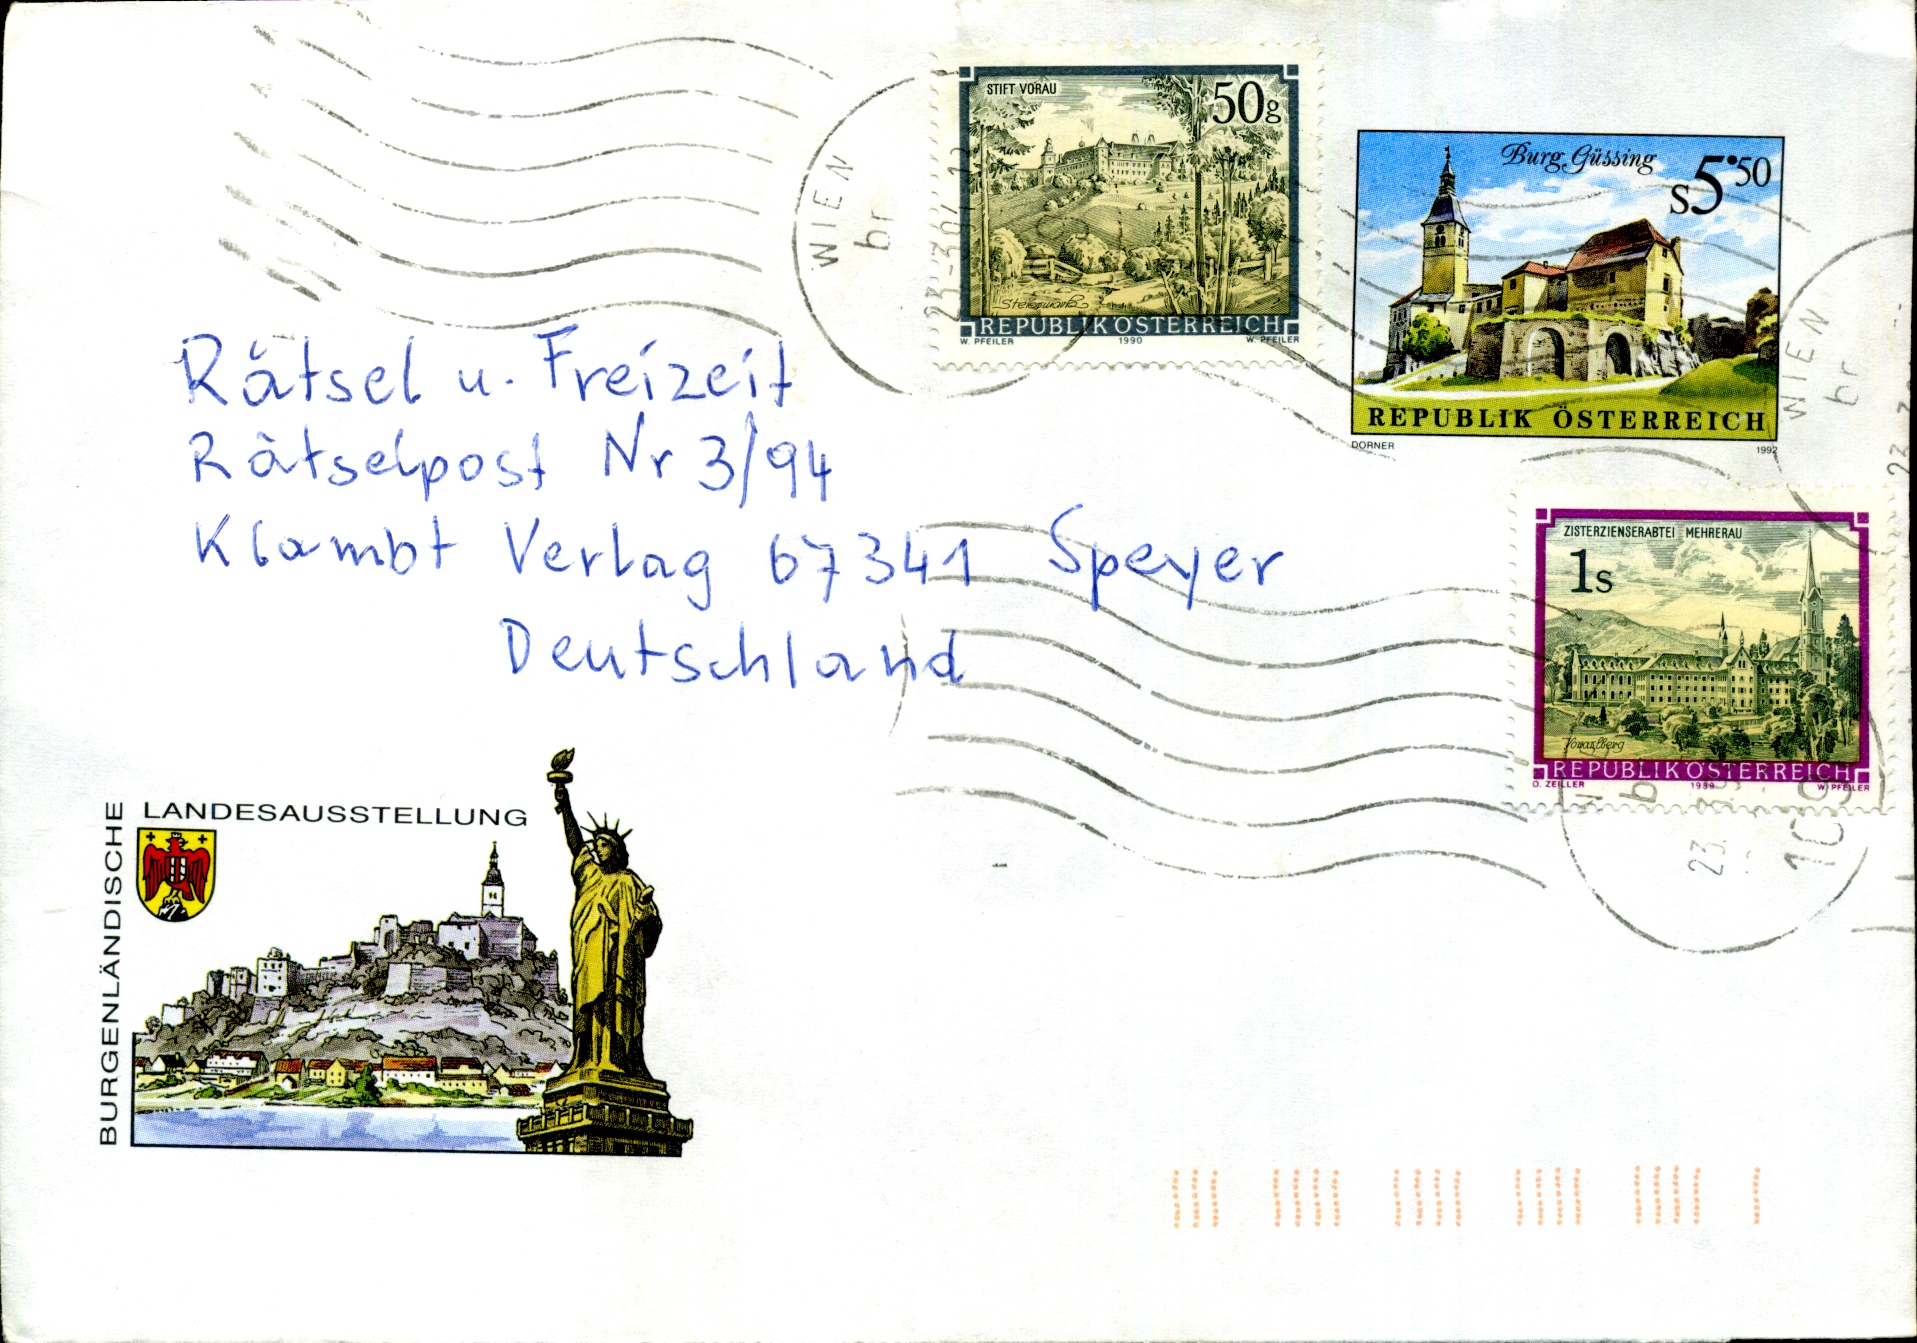 WIEN
br
23.-3.94-18
STIFT VORAU
50g
Steiermark
REPUBLIK ÖSTERREICH
W. PFEILER 1990 W. PFEILER
Burg Güssing
S5.50
REPUBLIK ÖSTERREICH
DORNER 1992
WIEN
br
23.3
Rätsel u. Freizeit
Rätselpost Nr 3/94
Klambt Verlag 67341 Speyer
Deutschland
ZISTERZIENSERABTEI MEHRERAU
1S
Vorarlberg
REPUBLIK ÖSTERREICH
O. ZEILLER 1989 W. PFEILER
23.
BURGENLÄNDISCHE
LANDESAUSSTELLUNG